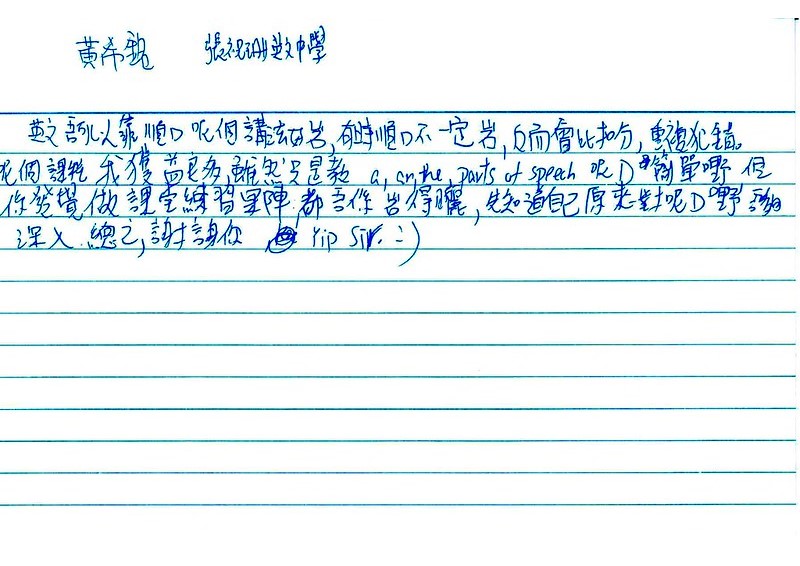 黃希 張祝珊英文中學
英文唔可以靠順D 呢個講法岩, 有時順D不一定岩, 反而會比扣分, 重複犯錯。
呢個課程 我獲益良多, 雖然只是教 a, an, the, parts of speech 呢D 簡單嘢 但
你發覺做課堂練習果陣都吾係岩得曬, 先知道自己原來對呢D嘢
深入. 總之, 謝謝你 Yip Sir. :)